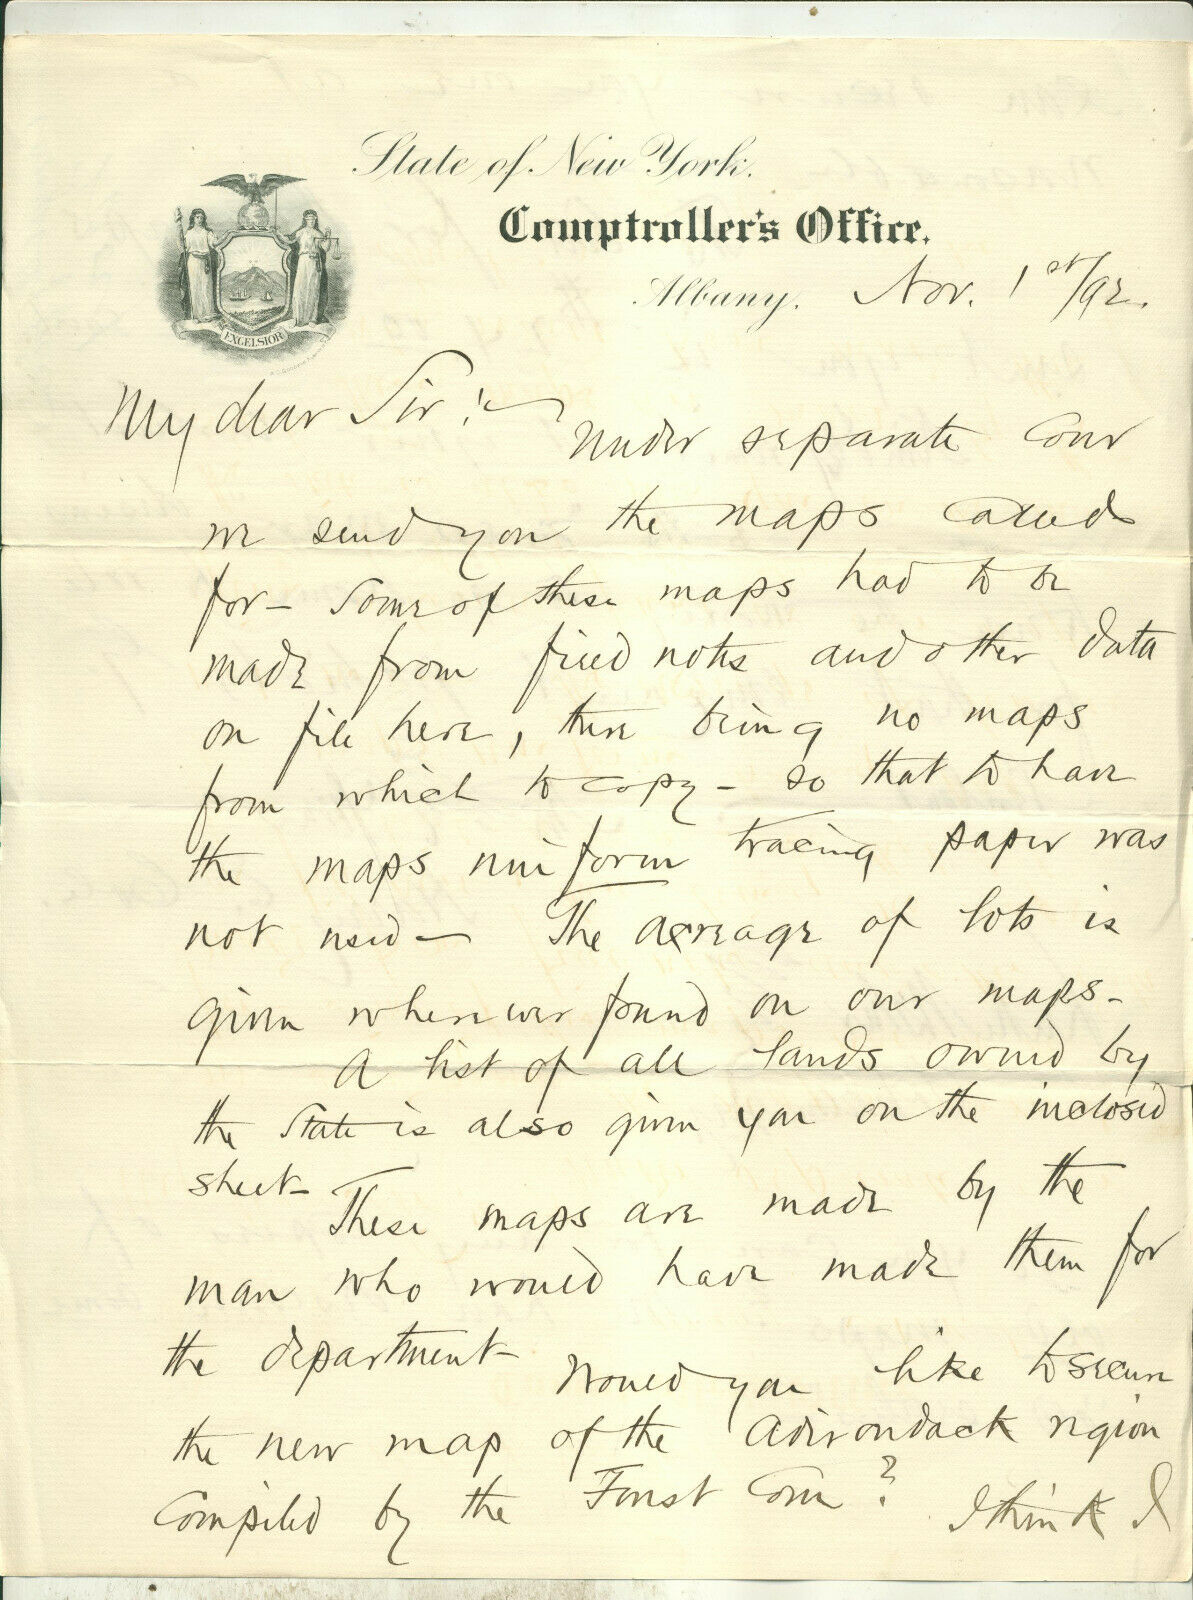 State of New York.
Comptroller's Office.
Albany, Nov. 1st/92.
EXCELSIOR
My dear Sir:
Under separate cover
we send you the maps called
for - Some of these maps had to be
made from field notes and other data
on file here, there being no maps
from which to copy - so that to have
the maps uniform tracing paper was
not used - The acreage of lots is
given wherever found on our maps -
A list of all lands owned by
the State is also given you on the inclosed
sheet -
These maps are made by the
man who would have made them for
the department -
Would you like to secure
the new map of the Adirondack region
compiled by the Forest Com? I think I